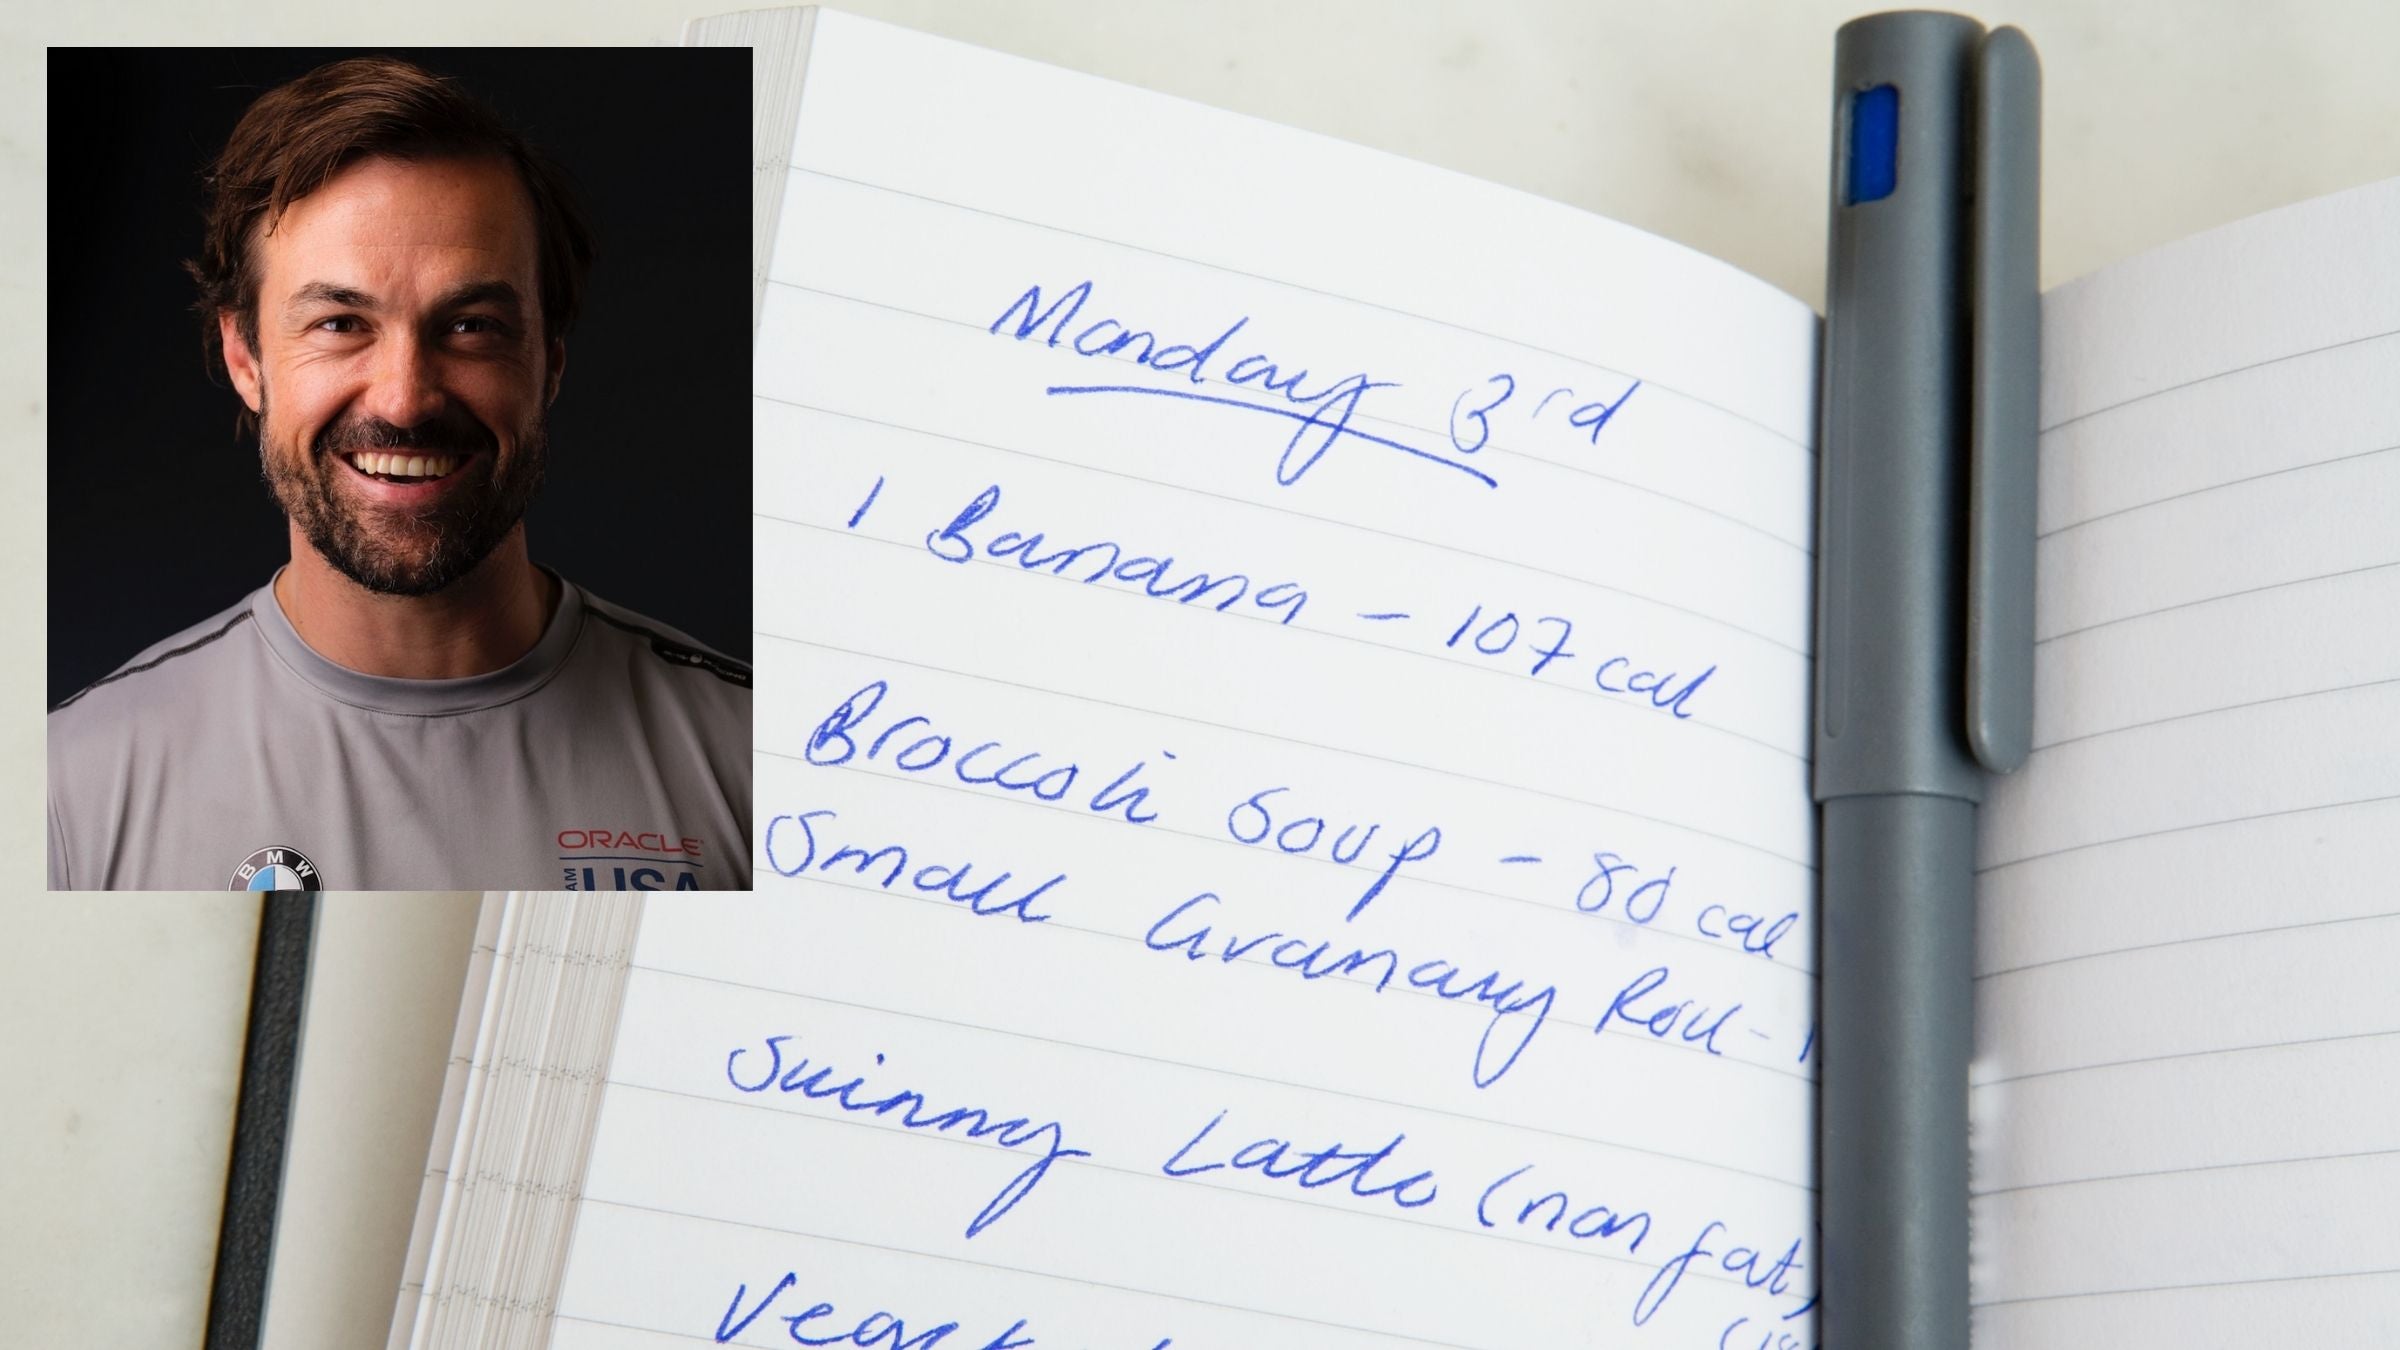 Monday 3rd
1 Banana - 107 cal
Broccoli Soup - 80 cal
Small Granary Roll - 1
Skinny Latte (non fat)
BMW
ORACLE
TEAM USA